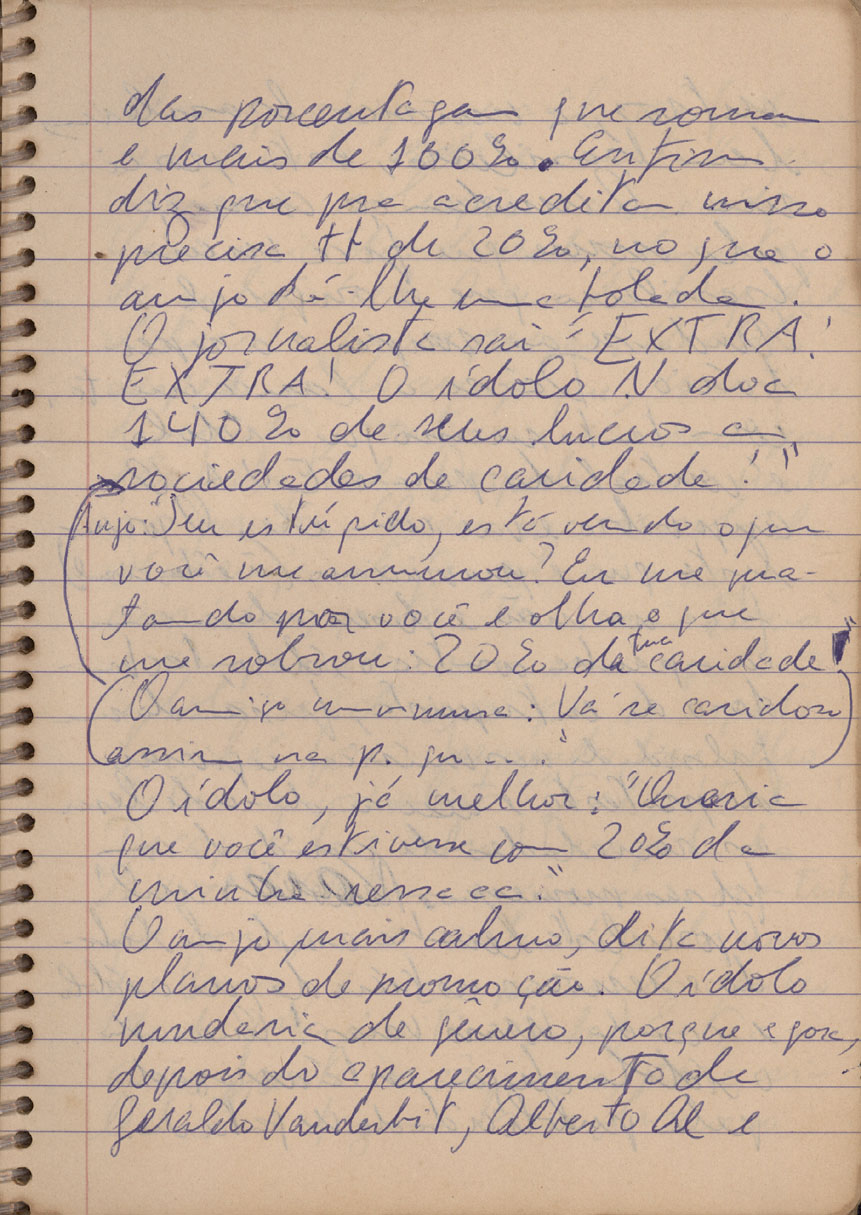 das porcentagem que somam
a mais de 100%. Enfim
diz que pra acreditar nisso
precisa de 20%, no que o
anjo dá-lhe uma bolada.
O jornalista sai "EXTRA!
EXTRA! O ídolo N doa
140% de seus lucros a
sociedades de caridade!"
Anjo: "Seu estúpido, está vendo o que
você me arrumou? Eu me ma-
tando por você e olha o que
me sobrou: 20% da tua caridade!"
O anjo murmura: Vá se caridoso
assim na p. qu....."
O ídolo, já melhor: "Queria
que você estivesse com 20% da
minha ressaca."
O anjo mais calmo, dita novos
planos de promoção. O ídolo
mudaria de gênero, porque agora,
depois do aparecimento de
Geraldo Vanderbit, Alberto Al e